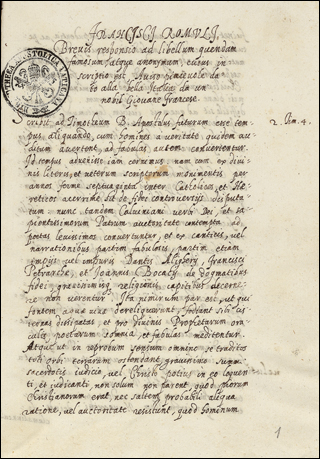 FRANCISCI ROMULI
Brevis responsio ad libellum quendam
famosum, atque anonymum, cuius in
scriptio est, Aviso piacevole da
to alla bella Italia da un
nobil Giovane Francese.
ad Timotheum B. Apostolus futurum esse tem
pus aliquando, cum homines a veritate quidem au
ditum avertent, ad fabulas autem convertentur.
Id tempus advenisse iam cernimus nam cum ex divi
nis literis, et veterum scriptorum monumentis per
annos ferme septuaginta inter Catholicos, et Hæ
reticos acerrime sit de fidei controversijs disputa
tum nunc tandem Calviniani verbi Dei, et sa
pientissimorum Patrum auctoritate contempta ad
poetas levissimos convertuntur, et ex cantibus, vel
narrationibus partim fabulosis, partim etiam
impijs, vel impuris Dantis Aligherij, Francisci
Petrarchæ, et Joannis Bocatij de dogmatibus
fidei, gravissimisque religionis capitibus decerne
re non verentur. Ita nimirum par est, ut qui
fontem aquæ vivæ dereliquerunt, fodiant sibi cis
ternas dissipatas, et pro divinis Prophetarum ora
culis, poetarum somnia, et fabulas meditentur.
Atque ut in reprobum sensum omnino se traditos
toti orbi terrarum ostendant, gravissimo summi
sacerdotis iudicio, vel Christo potius in eo loquen
ti, et iudicanti, non solum non parent, quod piorum
Christianorum erat, nec saltem probabili aliqua
ratione, vel auctoritate resistunt, quod hominum
2 Tim. 4.
1